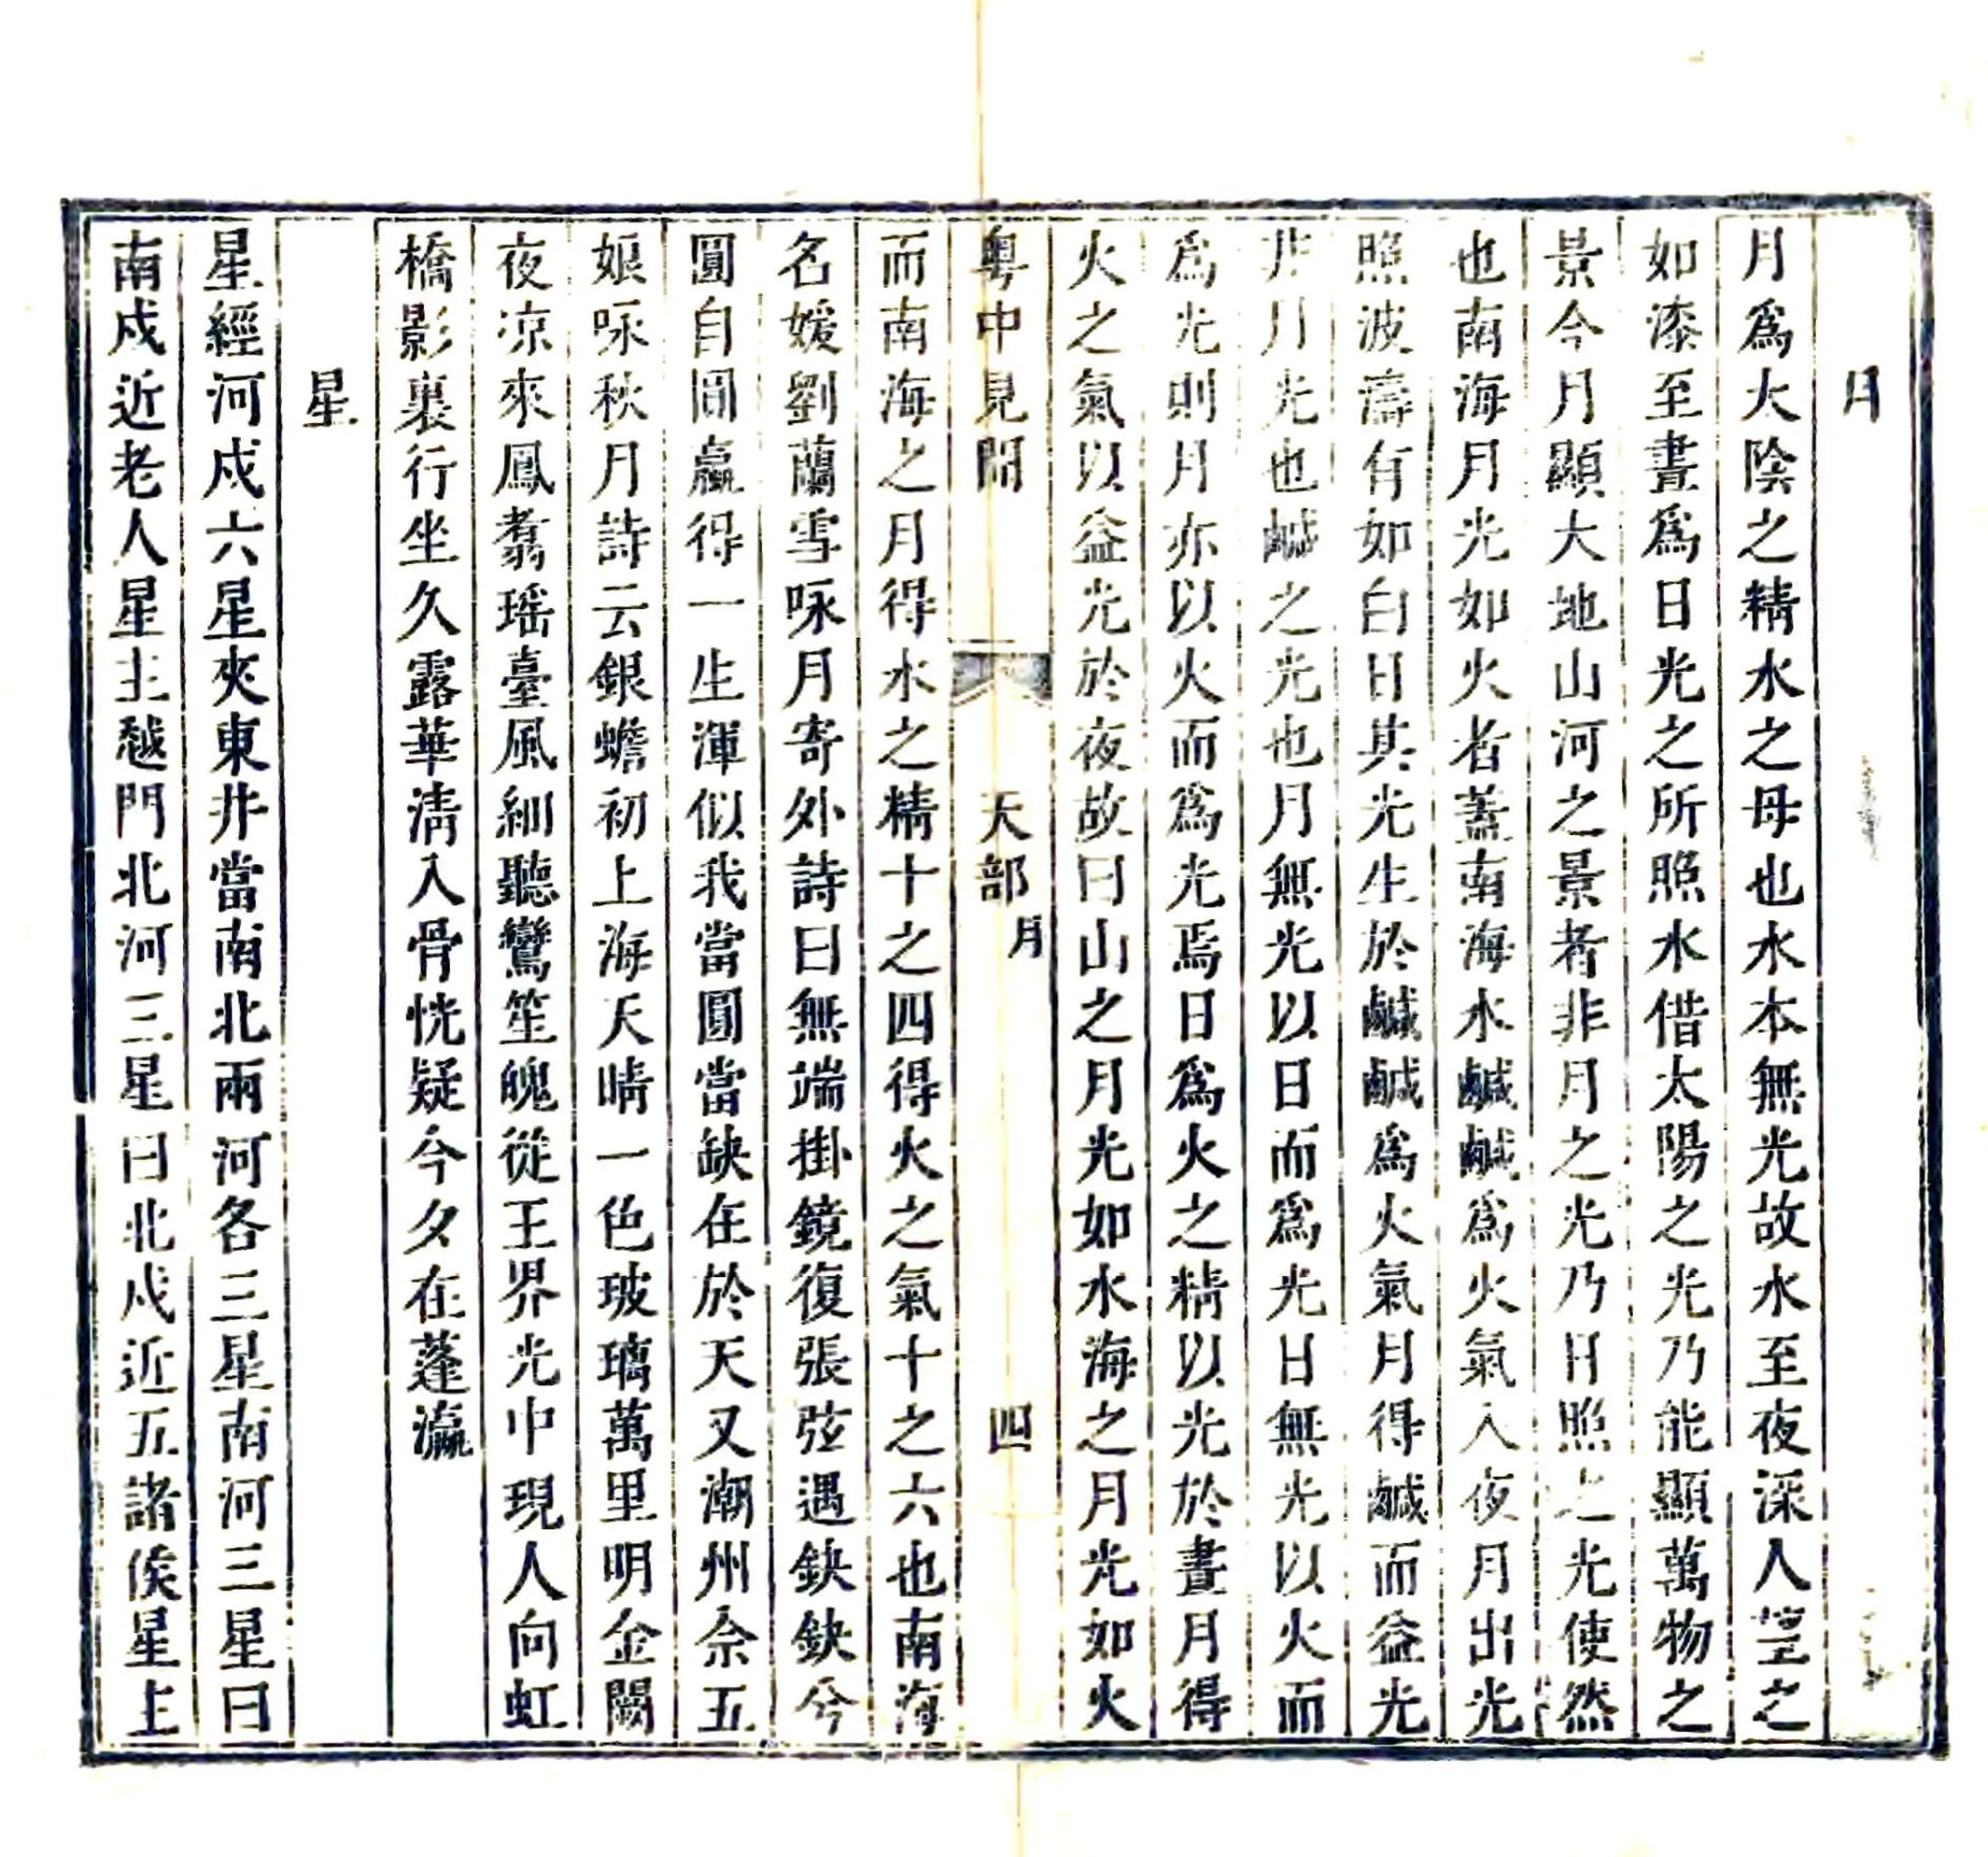 月
月爲大陰之精水之母也水本無光故水至夜深入空之
如漆至晝爲日光之所照水借太陽之光乃能顯萬物之
景今月顯大地山河之景者非月之光乃日照之光使然
也南海月光如火者蓋南海水鹹鹹爲火氣入夜月出光
照波濤有如白日其光生於鹹鹹爲火氣月得鹹而益光
非月光也鹹之光也月無光以日而爲光日無光以火而
爲光則月亦以火而爲光焉日爲火之精以光於晝月得
火之氣以益光於夜故曰山之月光如水海之月光如火
粤中見聞 天部 月 四
而南海之月得水之精十之四得火之氣十之六也南海
名媛劉蘭雪咏月寄外詩曰無端掛鏡復張弦遇鈌鈌兮
圓自圓贏得一生渾似我當圓當缺在於天又潮州佘五
娘咏秋月詩云銀蟾初上海天晴一色玻璃萬里明金闕
夜凉來鳳翥瑶臺風細聽鸞笙魄從王界光中現人向虹
橋影裏行坐久露華清入骨恍疑今夕在蓬瀛
星
星經河戍六星夾東井當南北兩河各三星南河三星曰
南戍近老人星主越門北河三星曰北戍近五諸侯星上